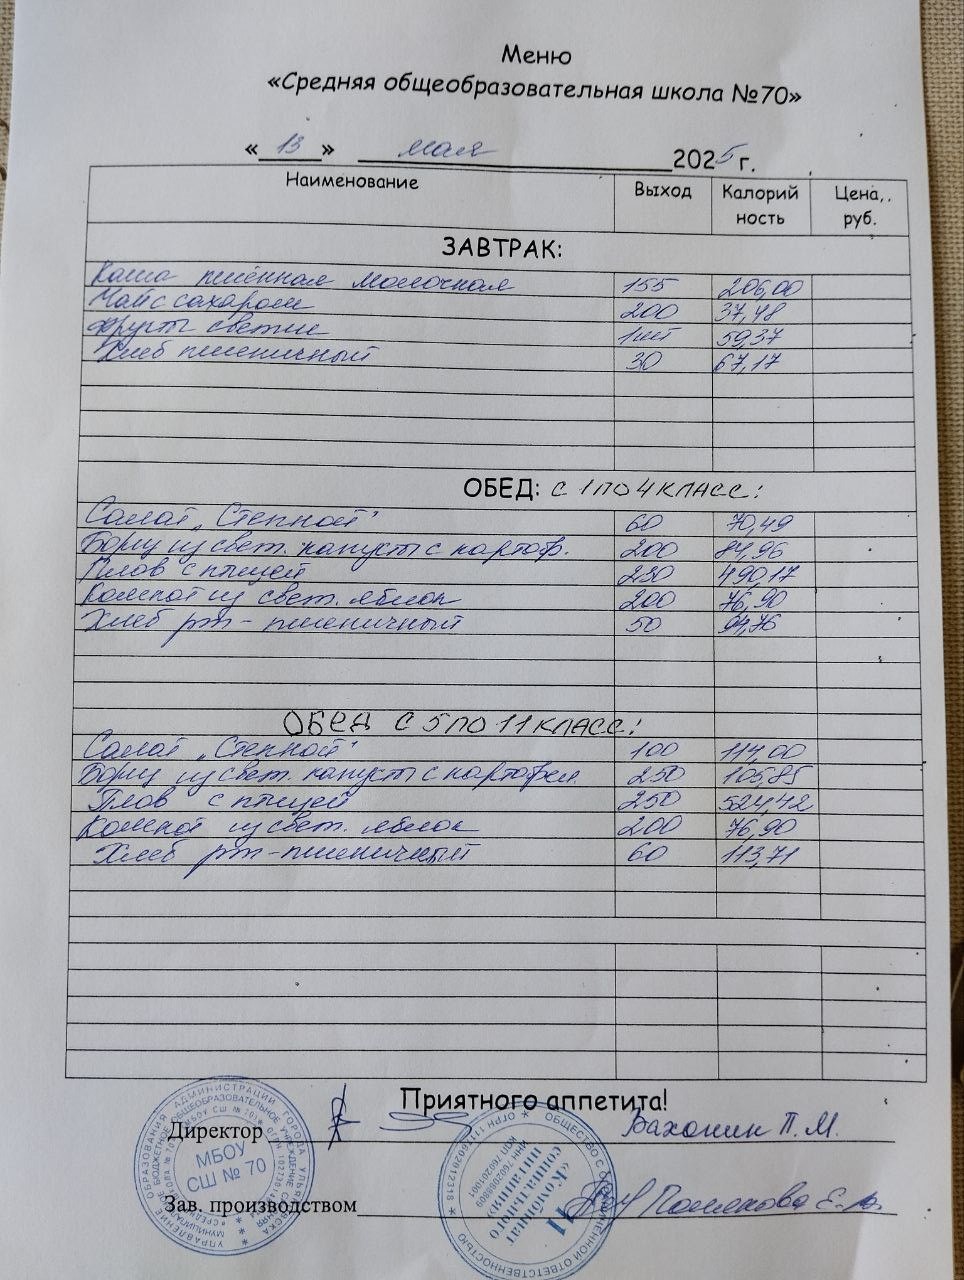 Меню
«Средняя общеобразовательная школа №70»
«13» мая 2025 г.
Наименование Выход Калорий ность Цена, руб.
ЗАВТРАК:
Каша пшённая молочная 155 206,00
Чай с сахаром 200 37,48
Фрукты свежие 1шт 59,37
Хлеб пшеничный 30 67,17
ОБЕД: С 1 ПО 4 КЛАСС:
Салат „Степной" 60 70,49
Борщ из свеж. капусты с картоф. 200 84,96
Плов с птицей 230 490,17
Компот из свеж. яблок 200 76,90
Хлеб рж-пшеничный 50 94,76
ОБЕД С 5 ПО 11 КЛАСС:
Салат „Степной" 100 114,00
Борщ из свеж. капусты с картофел. 250 105,85
Плов с птицей 250 524,42
Компот из свеж. яблок 200 76,90
Хлеб рж-пшеничный 60 113,71
Приятного аппетита!
Директор Вахонин П.М.
Зав. производством Полякова Е.
МБОУ
СШ № 70
«Комбинат
социального
питания»